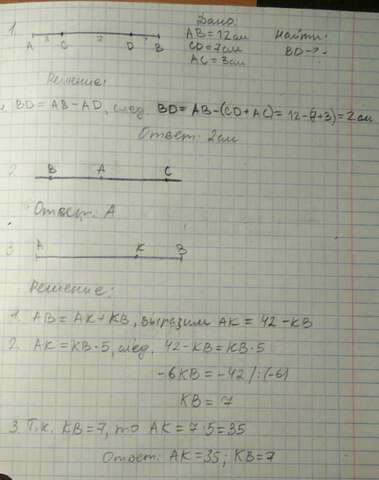 Дано:
1. AB=12см Найти:
A 3 C 7 D B CD=7см BD-?
AC=3см
Решение:
BD=AB-AD, след BD=AB-(CD+AC)=12-(7+3)=2см
Ответ: 2см
2. B A C
Ответ: A
3. A K B
Решение:
1. AB=AK+KB, выразим AK=42-KB
2. AK=KB·5, след. 42-KB=KB·5
-6KB=-42 /:(-6)
KB=7
3. Т.к. KB=7, то AK=7·5=35
Ответ: AK=35; KB=7